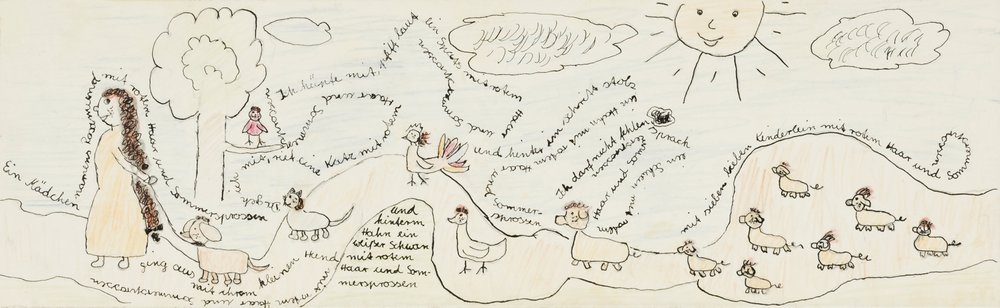 Ein Mädchen
namens Rosamund mit rotem Haar und Sommersprossen
ging aus mit ihrem kleinen Hund mit rotem Haar und Sommersprossen
Ich geh mit, rief eine Katz mit rotem Haar und Sommersprossen
Ich hüpfe mit, ruft laut
ein Spatz mit rotem Haar und Sommersprossen
und hinter ihm schreit stolz
ein Hahn mit rotem
Haar und
Sommer-
sprossen
und
hinterm
Hahn ein
weißer Schwan
mit rotem
Haar und Som-
mersprossen
Ich darf nicht fehlen
sprach
ein Schwein mit
rotem Haar und Sommersprossen
mit sieben lieben Kinderlein mit rotem
Haar und Sommersprossen